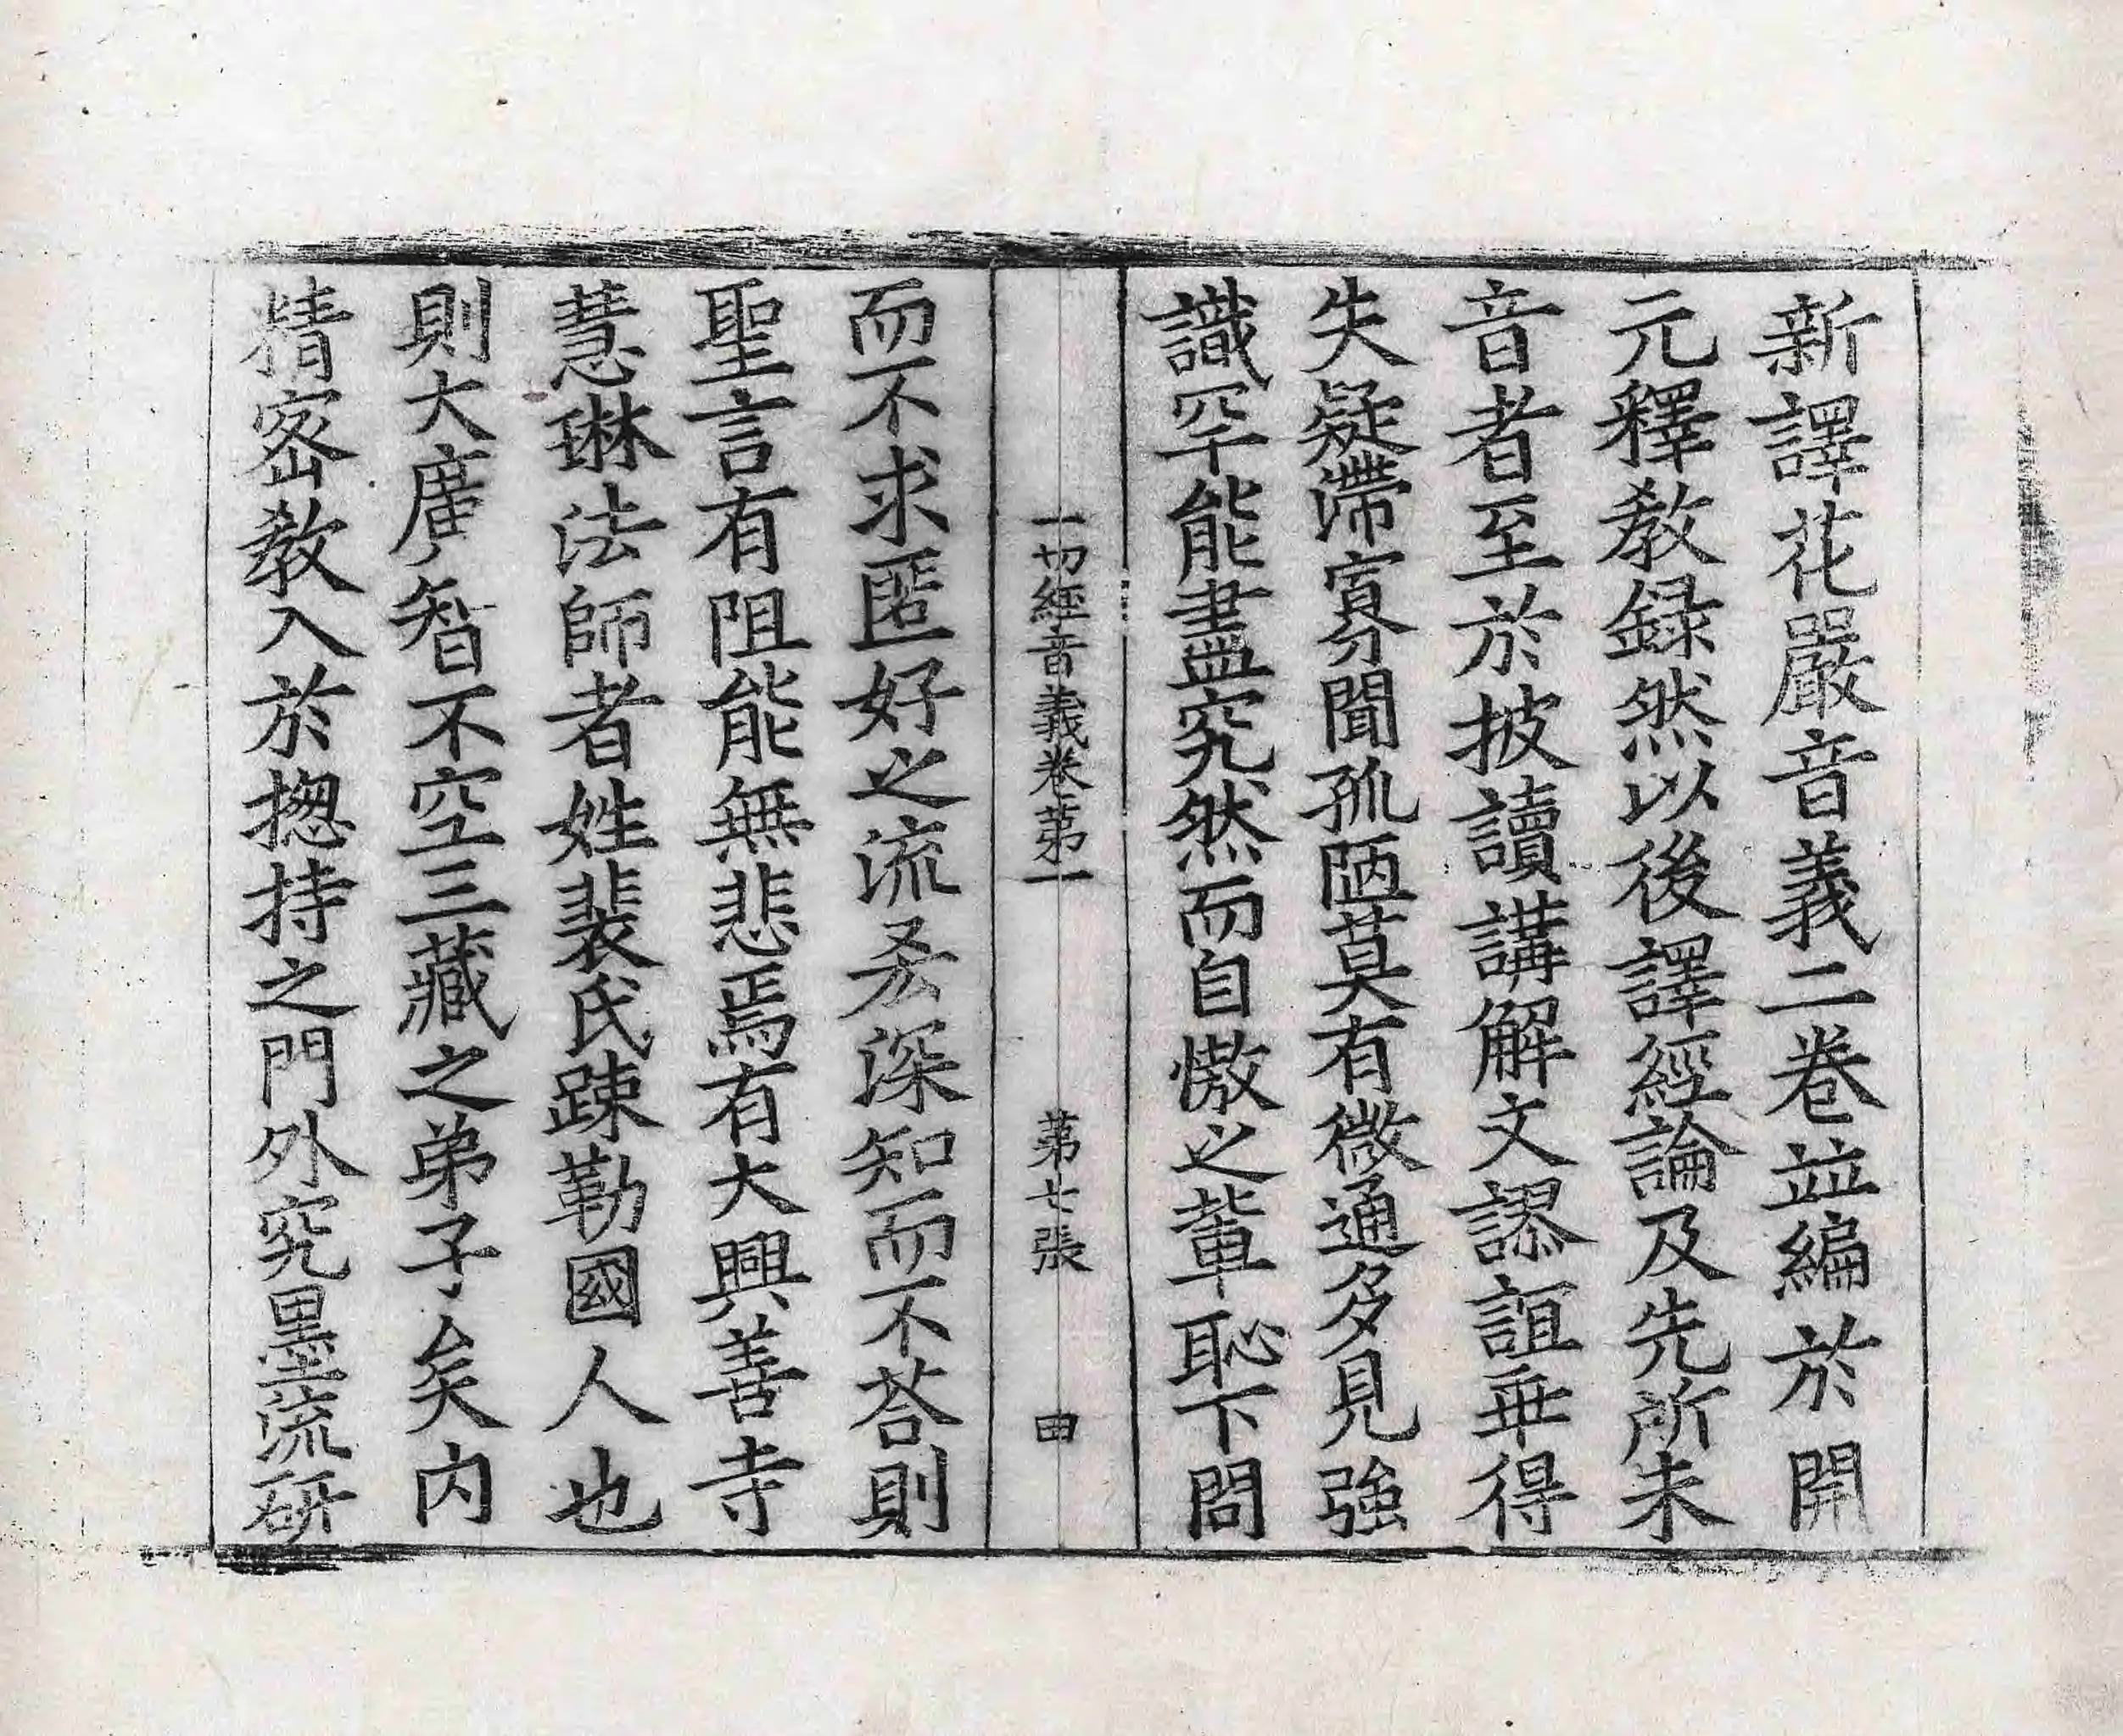 新譯花嚴音義二卷並編於開
元釋教録然以後譯經論及先所未
音者至於披讀講解文謬誼乖得
失疑滯寡聞孤陋莫有微通多見強
識罕能盡究然而自慠之輩恥下問
一切經音義卷苐一　苐七張　田
而不求匿好之流㳟深知而不荅則
聖言有阻能無悲焉有大興善寺
慧琳法師者姓裴氏踈勒國人也
則大廣智不空三藏之弟子矣内
精密教入於揔持之門外究墨流研